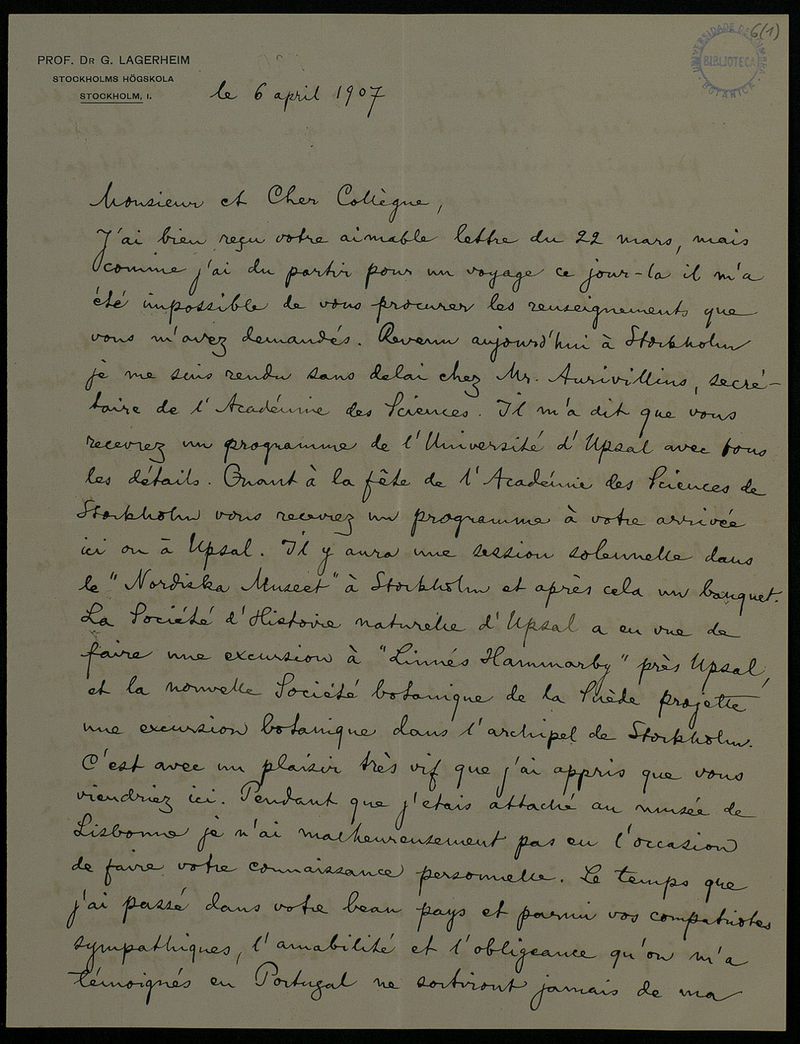 6(1)
UNIVERSIDADE DE COIMBRA
BIBLIOTECA
BOTANICA
PROF. DR G. LAGERHEIM
STOCKHOLMS HÖGSKOLA
STOCKHOLM, I.
le 6 april 1907
Monsieur et Cher Collègue,
J'ai bien reçu votre aimable lettre du 22 mars, mais
comme j'ai du partir pour un voyage ce jour-la il m'a
été impossible de vous procurer les renseignements que
vous m'avez demandés. Revenu aujourd'hui à Stockholm
je me suis rendu sans delai chez Mr. Aurivillius, secré-
taire de l'Académie des Sciences. Il m'a dit que vous
recevrez un programme de l'Université d'Upsal avec tous
les détails. Quant à la fête de l'Académie des Sciences de
Stockholm vous recevrez un programme à votre arrivée
ici ou à Upsal. Il y aura une session solennelle dans
le "Nordiska Museet" à Stockholm et après cela un banquet.
La Société d'Histoire naturelle d'Upsal a en vue de
faire une excursion à "Linnés Hammarby" près Upsal,
et la nouvelle Société botanique de la Suède projette
une excursion botanique dans l'archipel de Stockholm.
C'est avec un plaisir très vif que j'ai appris que vous
viendriez ici. Pendant que j'etais attaché au musée de
Lisbonne je n'ai malheureusement pas eu l'occasion
de faire votre connaissance personnelle. Le temps que
j'ai passé dans votre beau pays et parmi vos compatriotes
sympathiques, l'amabilité et l'obligeance qu'on m'a
témoignés en Portugal ne sortiront jamais de ma